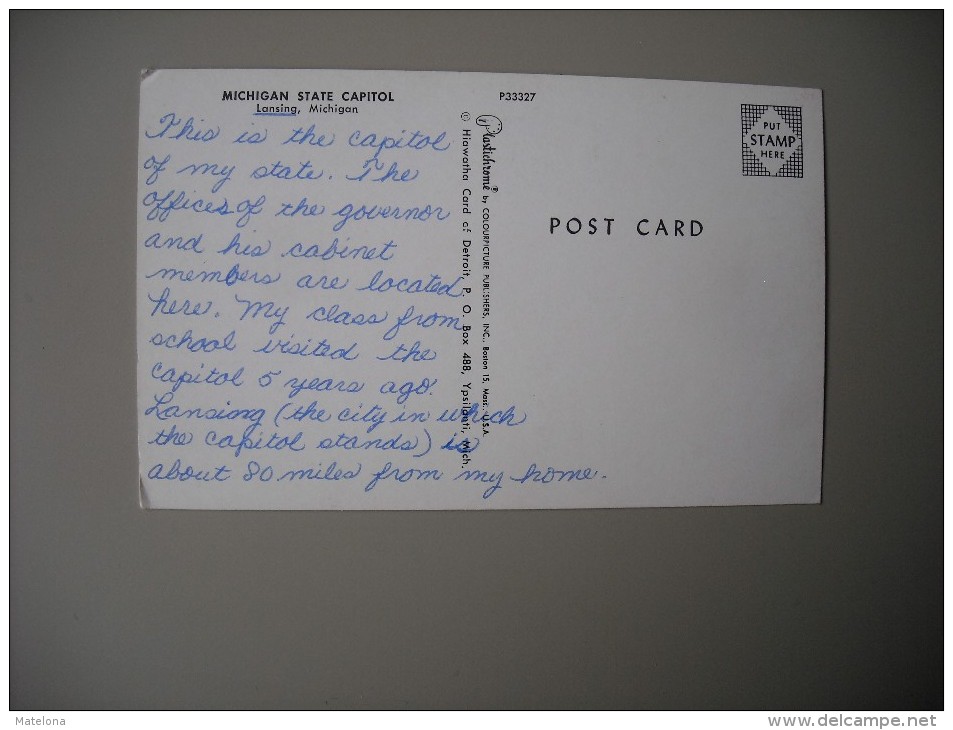 MICHIGAN STATE CAPITOL
Lansing, Michigan
This is the capitol
of my state. The
offices of the governor
and his cabinet
members are located
here. My class from
school visited the
capitol 5 years ago.
Lansing (the city in which
the capitol stands) is
about 80 miles from my home.
P33327
Plastichrome® by COLOURPICTURE PUBLISHERS, INC., Boston 15, Mass., U.S.A.
© Hiawatha Card of Detroit, P. O. Box 488, Ypsilanti, Mich.
PUT
STAMP
HERE
POST CARD
Matelona
www.delcampe.net